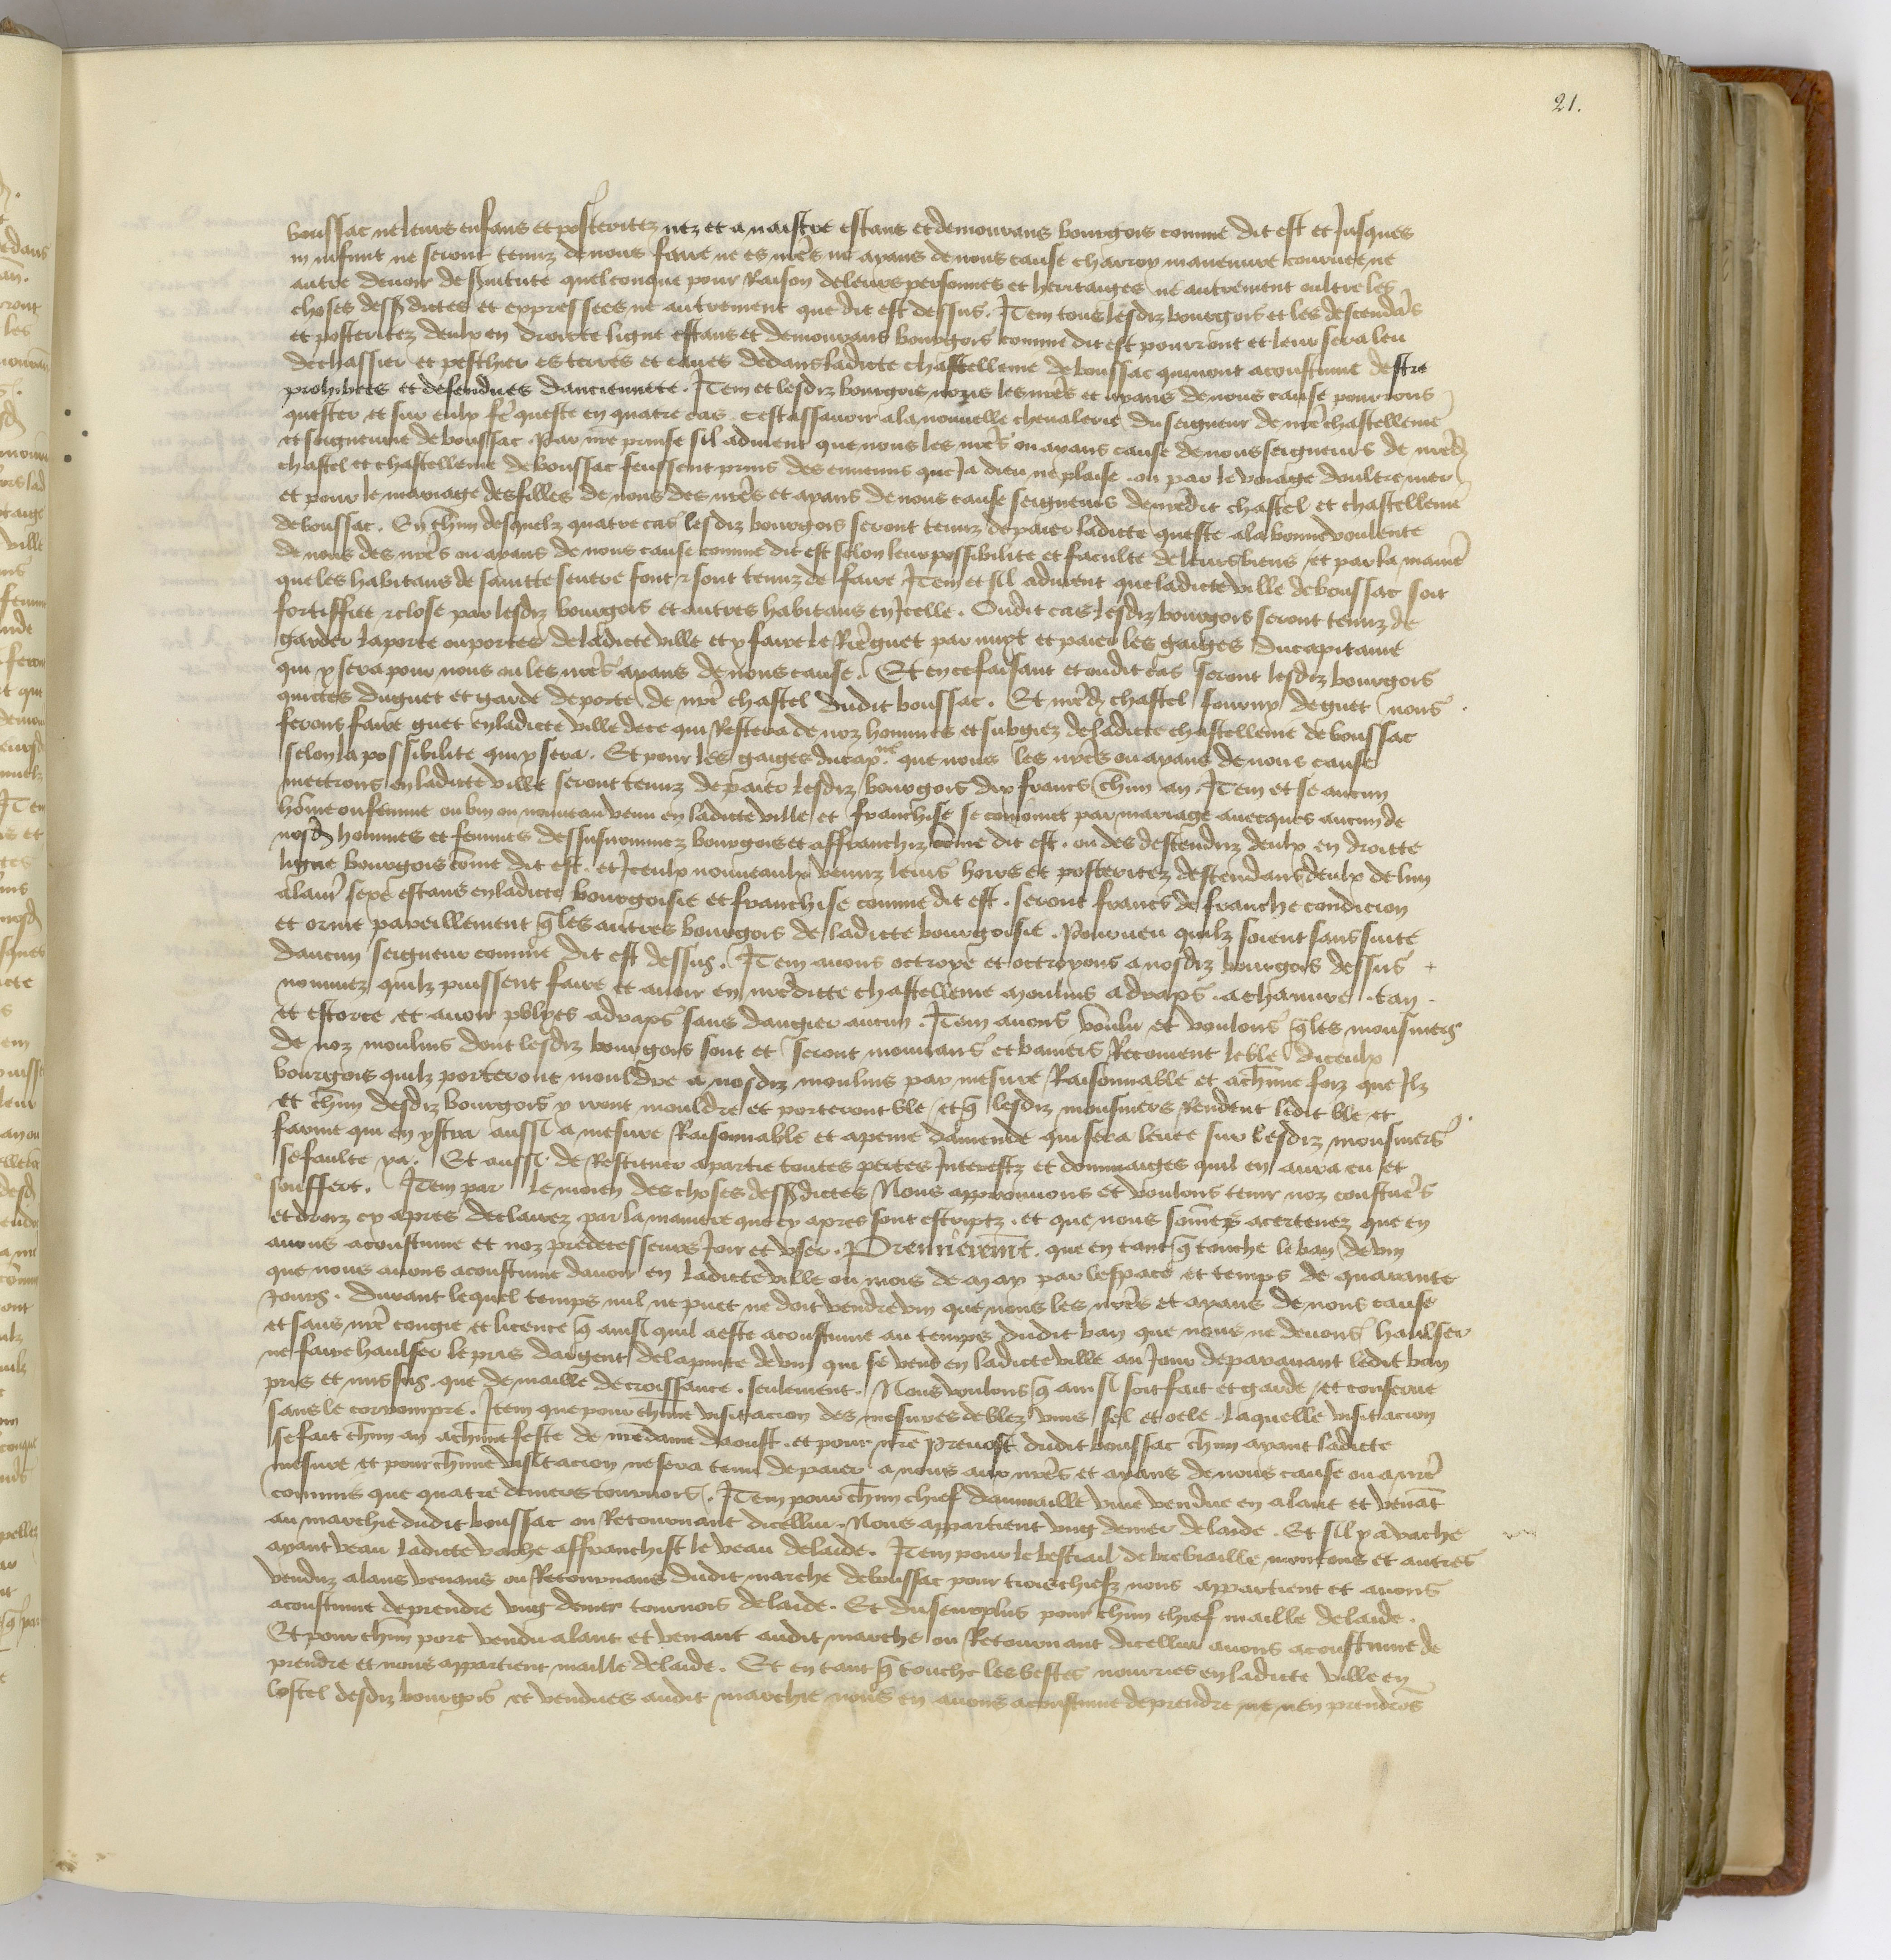 21.
boussac ne leurs enfans et posteritez nez et a naistre estans et demourans bourgois comme dit est et Jusques
in infinit ne seront tenuz de nous faire ne es nrẽs ne ayans de nous cause charroy maneuvre couruee ne
autre deuoir de suitute quelconque pour Raison de leurs personnes et heritaiges ne autrement oultre les
choses dessß dictes et expressees ne autrement que dit est dessus. Item tous lesdiz bourgois et les descendãs
et posteritez deulx en droicte ligne estans et demourans bourgois comme dit est pourront et leur sera leu
de chassier et peschier es terres et eaues dedans ladicte chastellenie de boussac qui nont acoustume destre
prohibees et defendues danciennete. Item et lesdiz bourgois nous les nrẽs et ayans de nous cause pourrons
quester et sur eulx fẽ queste en quatre cas. Cest assauoir a la nouuelle cheualerie du seigneur de nrẽ chastellenie
et seigneurie de boussac. Par nrẽ prinse sil aduient que nous les nrẽs ou ayans cause de nous seigneurs de nrẽd
chastel et chastellenie de boussac feussent prins des ennemis que Ja dieu ne plaise. ou par le voiage doultre mer
et pour le mariage des filles de nous des nrẽs et ayans de nous cause seigneurs de nrẽdit chastel et chastellenie
de boussac. En chũn desquelz quatre cas lesdiz bourgois seront tenuz de paier ladicte queste a la bonne voulente
de nous des nrẽs ou ayans de nous cause comme dit est selon leur possibilite et faculte de leurs biens et par la manie͂
que les habitans de saincte seuere font et sont tenuz de faire Item et sil aduient que ladicte ville de boussac soit
fortiffiee et close par lesdiz bourgois et autres habitans en Icelle. Oudit cas lesdiz bourgois seront tenuz de
garder la porte ou portes de ladicte ville et y faire le Reẽguet par nuyt et paier les gaiges du capitaine
qui y sera pour nous ou les nrẽs ayans de nous cause. Et en ce faisant et oudit cas seront lesdiz bourgois
quictes du guet et garde de porte de nrẽ chastel dudit boussac. Et nrẽd chastel fourny de guet nous
ferons faire guet en ladicte ville de ce qui Restera de noz hommes et subgiez de ladicte chastellenie de boussac
selon la possibilite qui y sera. Et pour les gaiges du cap.ne que nous les nrẽs ou ayans de nous cause
mettrons en ladicte ville seront tenuz de paier lesdiz bourgois dix francs chũn an. Item et se aucun
homẽ ou femme ou vin ou nouueau venu en ladicte ville et franchise se conioinct par mariage auecques aucun de
nosd hommes et femmes dessusnommez bourgois et affranchiz cõme dit est. ou des descenduz deulx en droitte
ligne bourgois cõme dit est. et Iceulx nouueaulx venuz leurs hoirs et posteritez descendans deulx de lun
a lautr̃ sexe estans en ladicte bourgoisie et franchise comme dit est. seront francs de franche condicion
et orine pareillement q̃ les autres bourgois de ladicte bourgoisie. Pourueu quilz soient sans suite
daucun seigneur comme dit est dessus. Item auons octroye et octroyons a nosdiz bourgois dessus
nommez quilz puissent faire et auoir en nrẽdicte chastellenie moulins a draps. a chanure. tan.
et escorce et auoir polyes a draps sans dangier aucun. Item auons voulu et voulons q̃ les mousniers
de noz moulins dont lesdiz bourgois sont et seront mouuans et baniers Recoiuent le ble diceulx
bourgois quilz porteront mouldre a nosdiz moulins par mesure Raisonnable et a chũne foiz que Ilz
et chũn desdiz bourgois y iront mouldre et porteront ble et q̃ lesdiz mousniers Rendent ledit ble et
farine qui en ystra aussi a mesure Raisonnable et a peine damende qui sera leuee sur lesdiz mousniers
se faulte ya. Et aussi de Restituer a partie toutes pertes Interestz et dommaiges quil en aura eu et
souffert. Item par le moien des choses dessß dictes Nous approuuons et voulons tenir noz coustũes
et droiz cy apres declairez par la maniere que cy apres sont escriptz. et que nous sommes acertenez que en
auons acoustume et noz predecesseurs Joir et vser. Premieremẽt. que en tant q̃ touche le ban de vin
que nous auons acoustume dauoir en ladicte ville ou mois de may par lespace et temps de quarante
Jours. durant lequel temps nul ne puet ne doit vendre vin que nous les nrẽs et ayans de nous cause
et sans nrẽ congie et licence q̃ ainsi quil a este acoustume au temps dudit ban que nous ne deuons haulser
ne faire haulser le pris dargent de la pinte de vin qui se vend en ladicte ville au Jour de parauant ledit ban
pris et mis sus. que de maille de croissance. seulement. Nous voulons q̃ ainsi soit fait et garde et conserue
sans le corrompre. Item que pour chũne visitacion des mesures de blez vins sel et oele. Laquelle visitacion
se fait chũn an a chũne feste de nrẽ dame daoust. et pour nrẽ preuost dudit boussac chũn ayant ladicte
mesure et pour chũne visitacion ne sera tenu de paier a nous aux nrẽs et ayans de nous cause ou a nrẽ
commis que quatre deniers tournois. Item pour chũn chief daumaille viue vendue en alant et venãt
au marchie dudit boussac ou Retournant dicellui. Nous appartient vng denier de laide. Et sil y a vache
ayant veau ladicte vache affranchist le veau de laide. Item pour le bestiail de brebiaille moutons et autres
venduz alans venans ou Retournans dudit marche de boussac pour trois chiefz nous appartient et auons
acoustume de prendre vng denier tournois de laide. Et du seurplus pour chũn chief maille de laide.
Et pour chũn porc vendu alant et venant audit marche ou Retournant dicellui auons acoustume de
prendre et nous appartient maille de laide. Et en tant q̃ touche les bestes nourries en ladicte ville en
lostel desdiz bourgois et vendues audit marchie nous en auons acoustume de prendre ne nen prendrõs